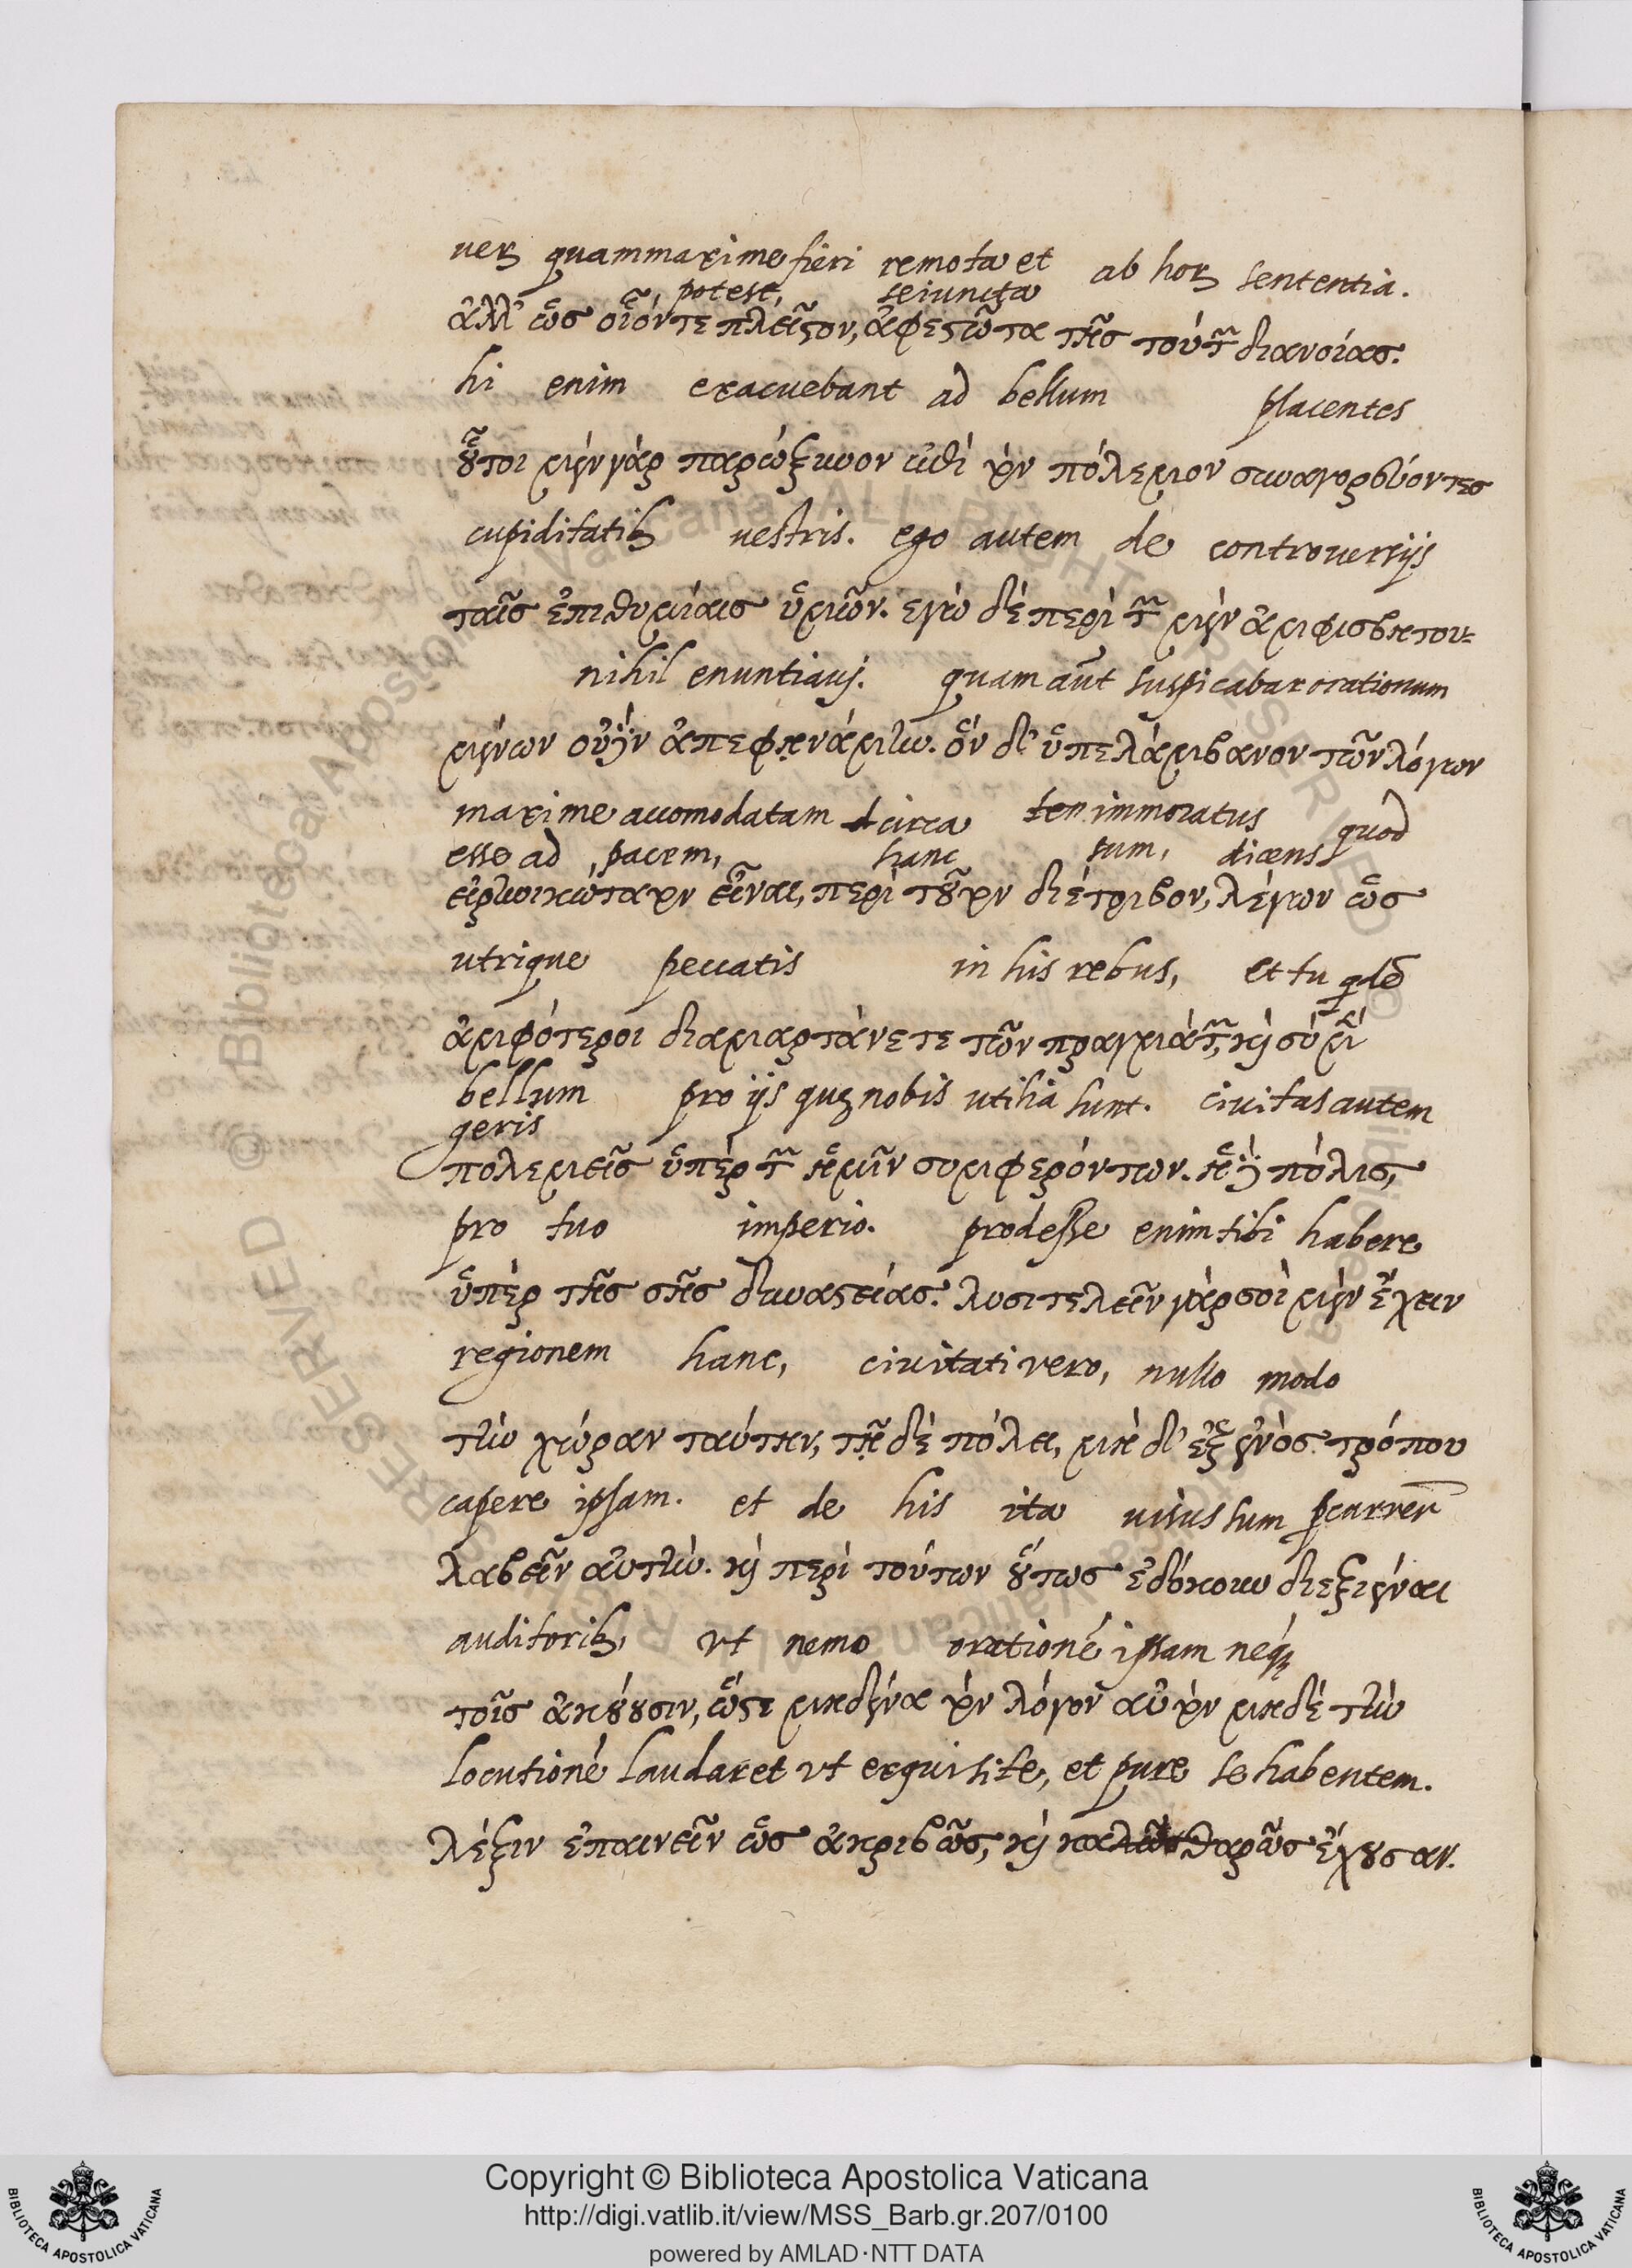 uerꝫ quammaxime fieri remota et ab horꝫ sententia.
potest, seiuncta
ἀλλ' ὡς οἷόν τε πλεῖστον, ἀφεστῶτα τῆς τούτων διανοίας.
hi enim exacuebant ad bellum placentes
οὗτοι μὲν γὰρ παρώξυνον ἐπὶ τὸν πόλεμον συναγορεύοντες
cupiditatibꝫ uestris. ego autem de controuersijs
ταῖς ἐπιθυμίαις ὑμῶν. εγὼ δὲ περὶ τῶν μὲν ἀμφισβητου=
nihil enuntiauj. quam aūt suspicabar orationum
μένων οὐδὲν ἀπεφηνάμην. ὃν δ' ὑπελάμβανον τῶν λόγων
maxime accomodatam circa immoratus quod
esse ad pacem, hanc sum, dicens
εἰρηνικώτατον εἶναι, περὶ τοῦτον διέτριβον, λέγων ὡς
utrique peccatis in his rebus, et tu qdē
ἀμφότεροι διαμαρτάνετε τῶν πραγμάτων, καὶ σὺ μὲν
bellum pro ijs quę nobis utilia sunt. ciuitas autem
geris
πολεμεῖς ὑπὲρ τῶν ἡμῖν συμφερόντων. ἡ δὲ πόλις,
pro tuo imperio. prodesse enim tibi habere
ὑπὲρ τῆς σῆς δυναστείας. λυσιτελεῖν γὰρ σοὶ μὲν ἔχειν
regionem hanc, ciuitati vero, nullo modo
τὴν χώραν ταύτην, τῇ δὲ πόλει, μὴ δ' ἐξ ἑνὸς τρόπου
capere ipsam. et de his ita uisus sum pcurrer
λαβεῖν αὐτὴν. καὶ περὶ τούτων οὕτως ἐδόκουν διεξιέναι
auditoribꝫ vt nemo orationē ipsam neqꝫ
τοῖς ἀκούουσιν, ὥστε μηδένα τὸν λόγον αὐτὸν μηδὲ τὴν
locutionē laudaret vt exquisite, et pure se habentem.
λέξιν ἐπαινεῖν ὡς ἀκριβῶς, καὶ καθαρῶς ἔχουσαν.
Copyright © Biblioteca Apostolica Vaticana
http://digi.vatlib.it/view/MSS_Barb.gr.207/0100
powered by AMLAD·NTT DATA
BIBLIOTECA APOSTOLICA VATICANA
BIBLIOTECA APOSTOLICA VATICANA